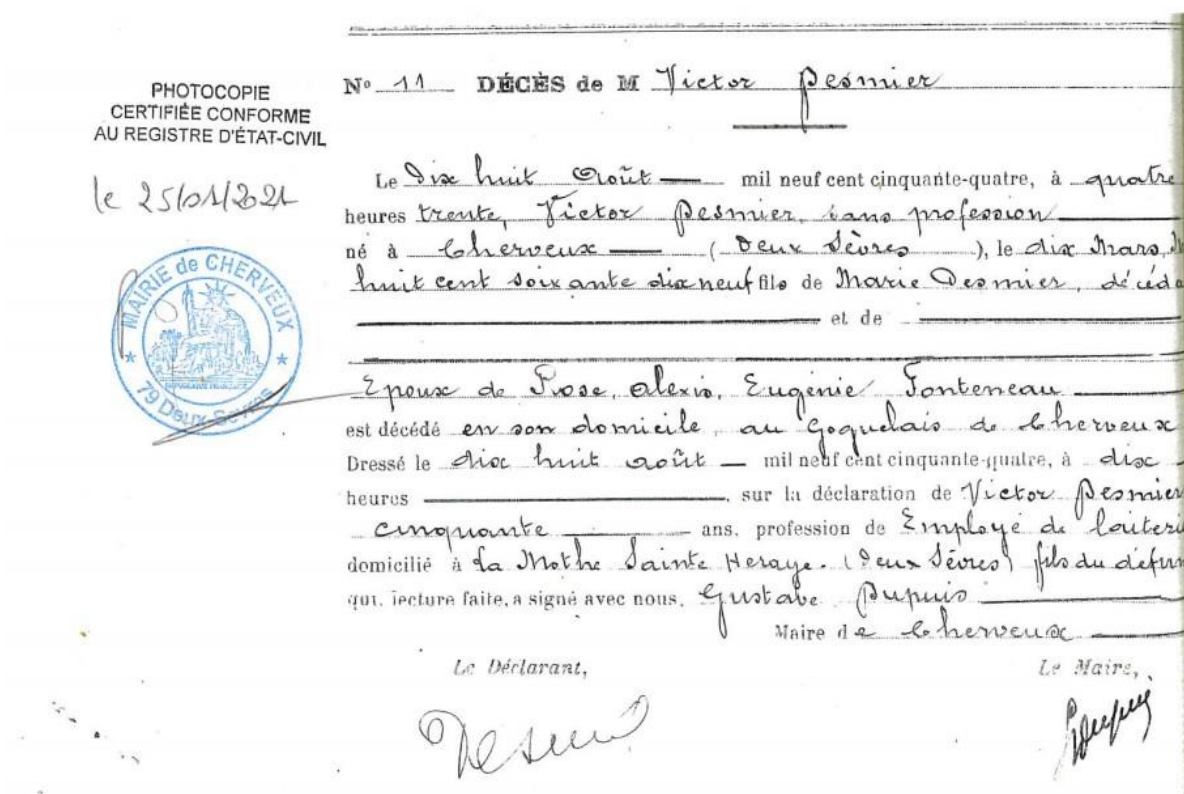 PHOTOCOPIE
CERTIFIÉE CONFORME
AU REGISTRE D'ÉTAT-CIVIL
le 25/01/2021
MAIRIE de CHERVEUX
79 Deux-Sèvres
N° 11 DÉCÈS de M Victor Desmier
Le Dix huit Août mil neuf cent cinquante-quatre, à quatre
heures trente, Victor Desmier, sans profession
né à Cherveux (Deux Sèvres), le dix Mars, M
huit cent soixante dix neuf fils de Marie Desmier, décéd
et de
Epoux de Rose, Alexis, Eugénie Fonteneau
est décédé en son domicile, au Goguelais de Cherveux
Dressé le dix huit août mil neuf cent cinquante-quatre, à dix
heures, sur la déclaration de Victor Desmier
cinquante ans, profession de Employé de laiteri
domicilié à La Mothe Sainte Heraye. (Deux Sèvres) fils du défun
qui, lecture faite, a signé avec nous, Gustave Dupuis
Maire de Cherveux
Le Déclarant, Le Maire,